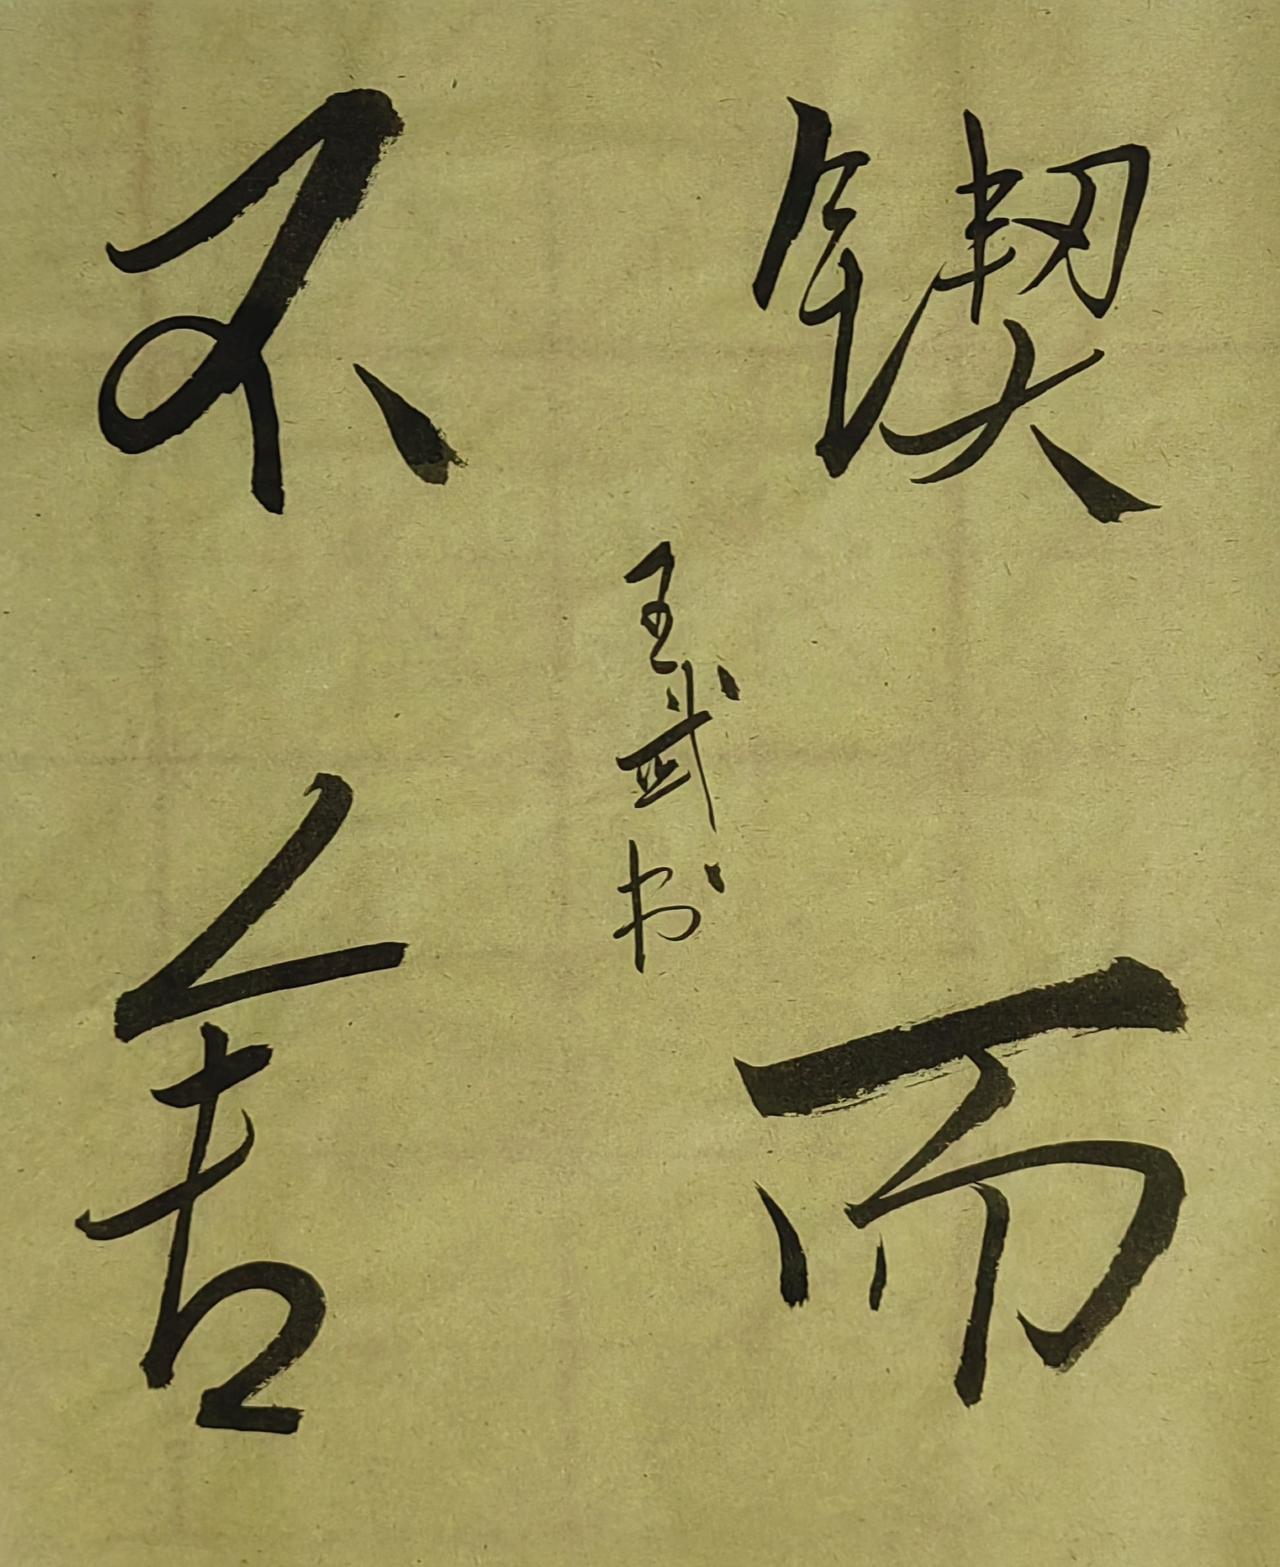 锲而
不舍
王武书